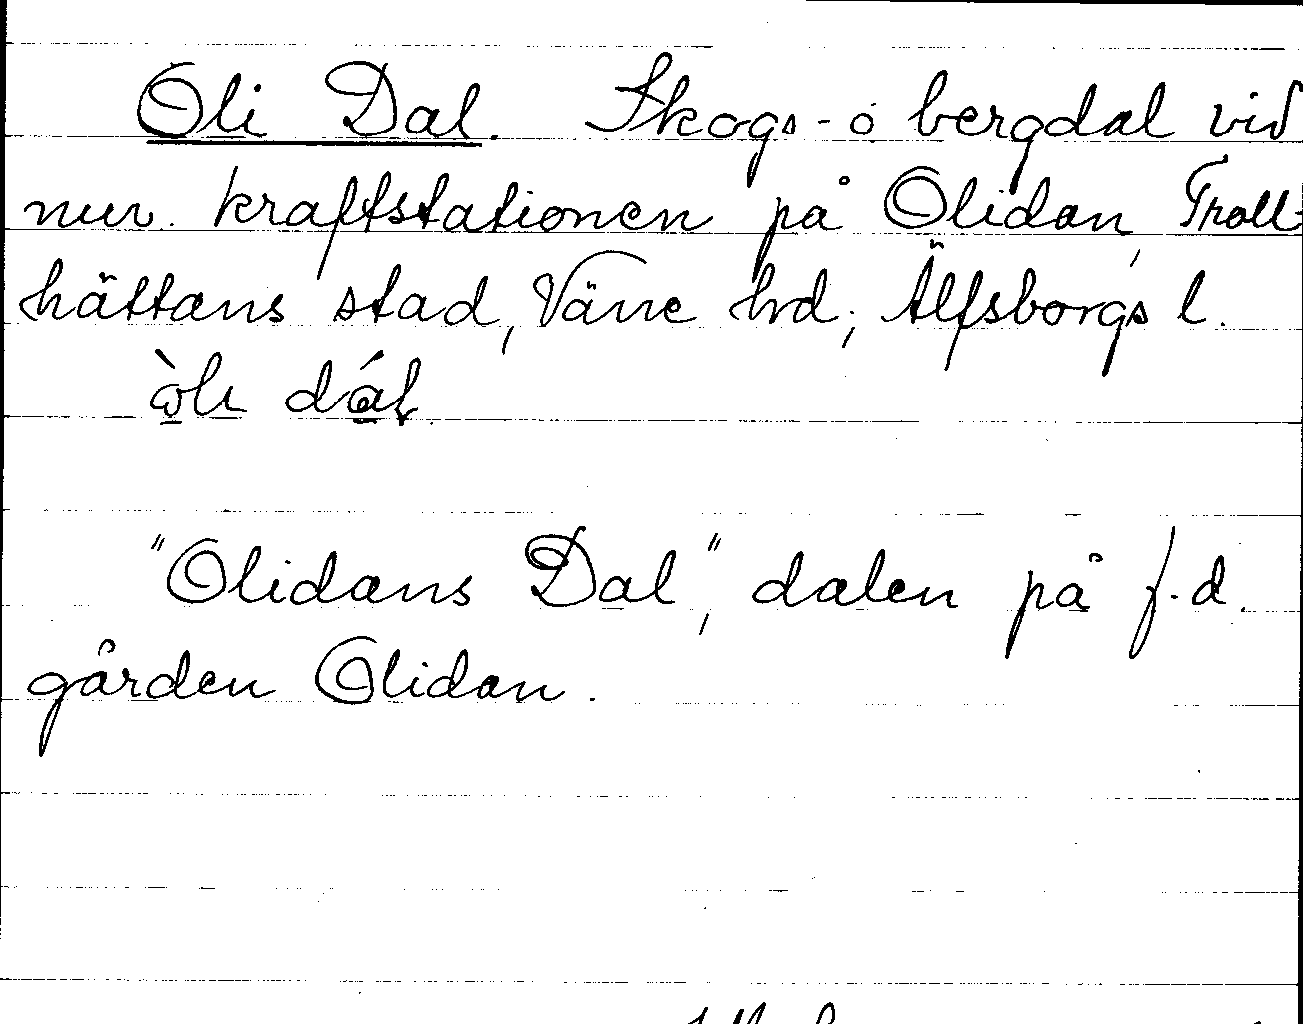 Oli Dal. Skogs- o bergdal vid
nuv. kraftstationen på Olidan, Troll-
hättans stad, Väne hd, Älfsborgs l.
"Olidans Dal", dalen på f.d.
gården Olidan.